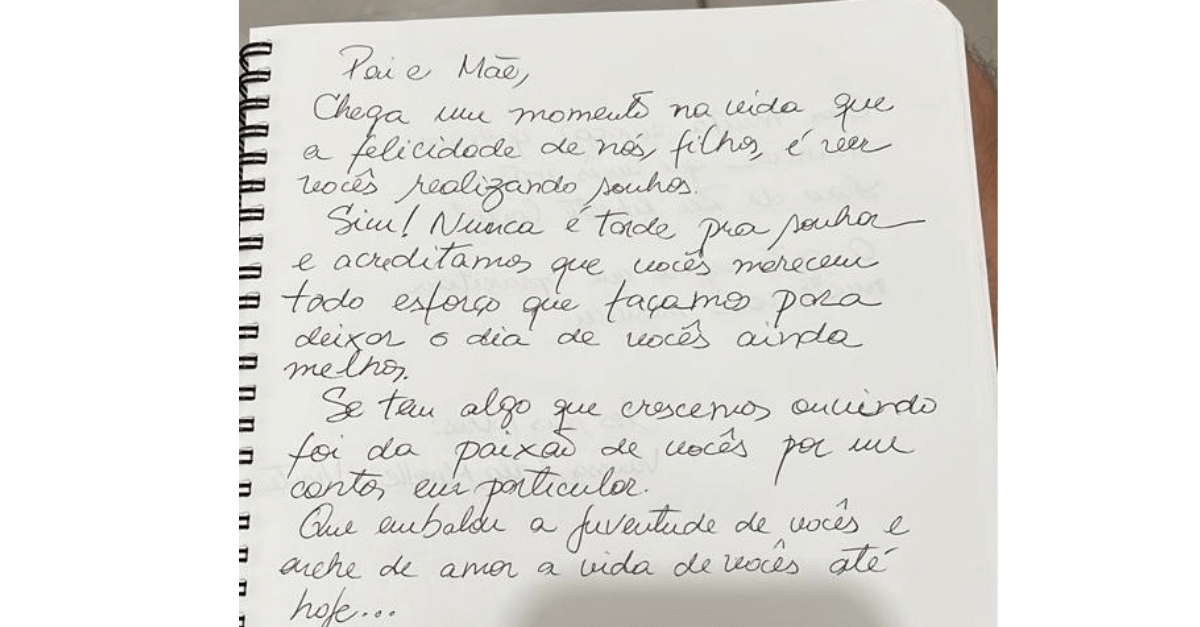 Pai e Mãe,
Chega um momento na vida que
a felicidade de nós, filhos, é ver
vocês realizando sonhos.
Sim! Nunca é tarde pra sonhar
e acreditamos que vocês merecem
todo esforço que façamos para
deixar o dia de vocês ainda
melhor.
Se tem algo que crescemos ouvindo
foi da paixão de vocês por um
cantor em particular.
Que embalou a juventude de vocês e
enche de amor a vida de vocês até
hoje...